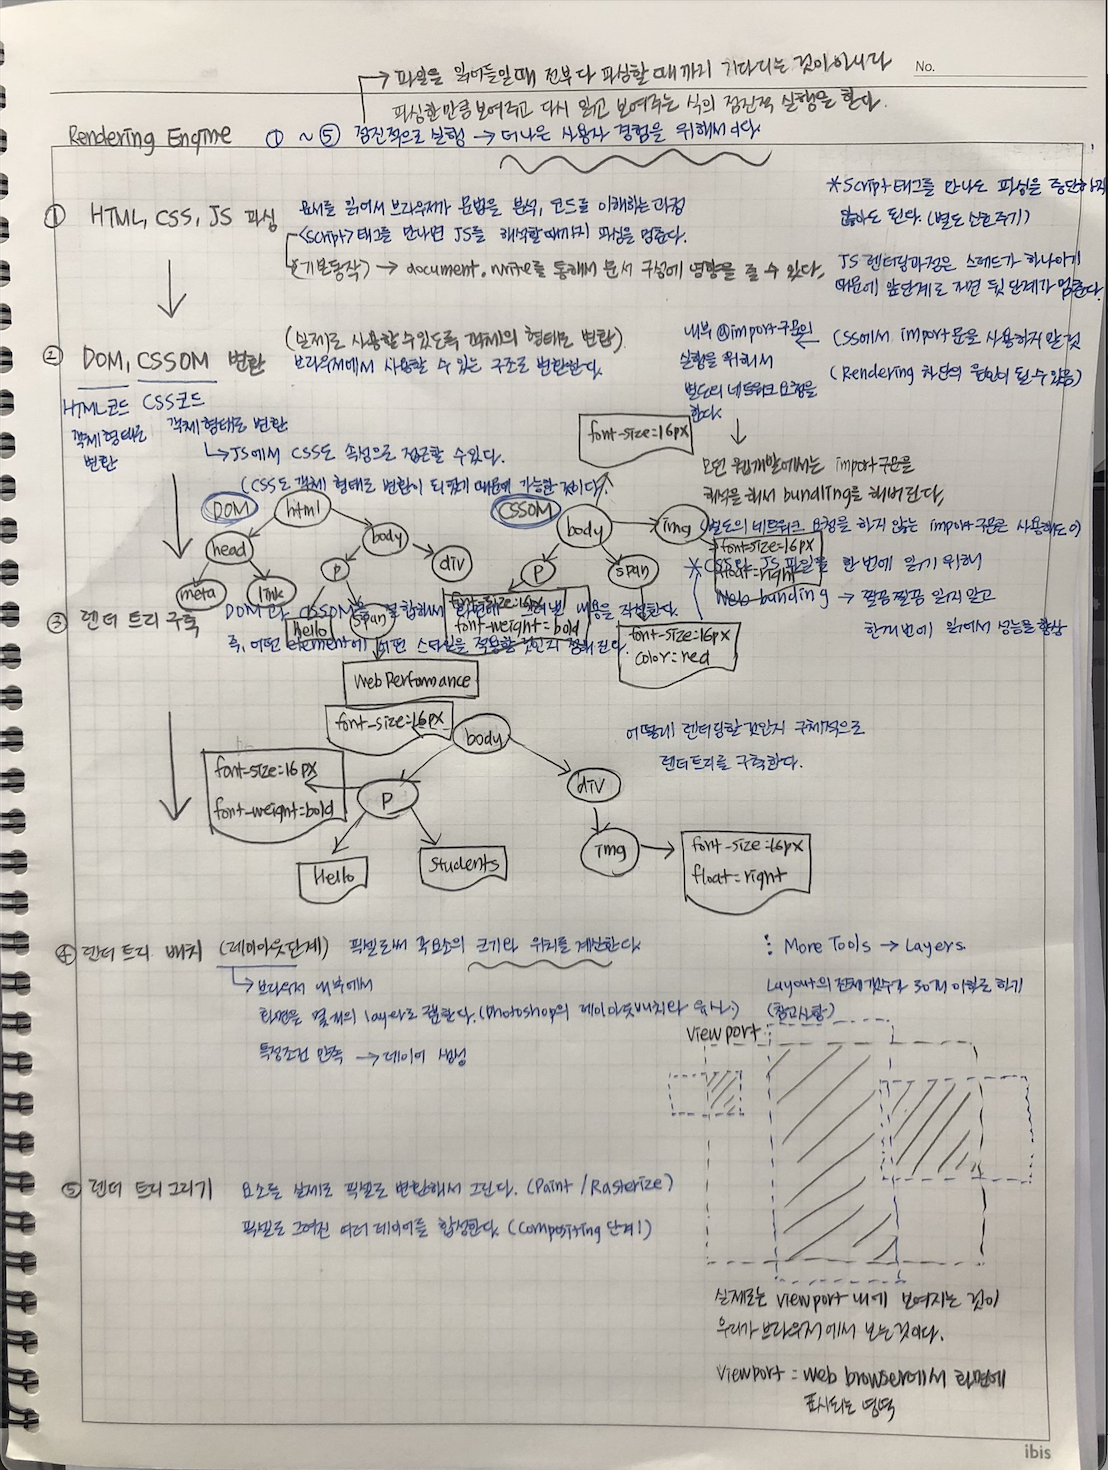 파일을 읽어들일때 전부다 파싱할 때까지 기다리는 것이 아니라
No.
파싱한 만큼 보여주고 다시 읽고 보여주는 식의 점진적 실행을 한다.
Rendering Engine ① ~ ⑤ 점진적으로 실행 → 더 나은 사용자 경험을 위해서이다
① HTML, CSS, JS 파싱
문서를 읽어서 브라우저가 문법을 분석, 코드를 이해하는 과정
<Script> 태그를 만나면 JS를 해석할때까지 파싱을 멈춘다.
(기본동작) → document.write를 통해서 문서 구성에 영향을 줄 수 있다.
*Script 태그를 만나도 파싱을 중단하지
않아도 된다. (별도 신호주기)
JS 렌더링과정은 스레드가 하나이기
때문에 앞단계로 가면 뒷 단계가 멈춘다.
② DOM, CSSOM 변환
(실제로 사용할 수 있도록 객체의 형태로 변환)
브라우저에서 사용할 수 있는 구조로 변환한다.
HTML코드
객체 형태로
변환
CSS코드
객체 형태로 변환
↳ JS에서 CSS도 속성으로 접근할 수 있다.
(CSS도 객체 형태로 변환이 되었기 때문에 가능한 것이다.)
내부 @import 구문의
실행을 위해서
별도의 네트워크 요청을
한다.
CSS에서 import문을 사용하지 말 것
(Rendering 차단의 요인이 될 수 있음)
모던 웹개발에서는 import 구문을
해석을 해서 bundling을 해버린다.
별도의 네트워크 요청을 하지 않는 import 구문은 사용해도 이
* CSS와 JS 파일을 한 번에 읽기 위해
Web bunding → 찔끔찔끔 읽지 않고
한개 번에 읽어서 성능을 향상
DOM
html
head
body
meta
link
p
div
hello
span
Web Performance
CSSOM
font-size=16px
body
p
span
img
font-size=16px
font-weight=bold
font-size=16px
color=red
font-size=16px
float=right
③ 렌더 트리 구축
DOM과 CSSOM을 결합해서 내용을 작성한다.
즉, 어떤 element에 어떤 스타일을 적용할 것인지 정해진다.
어떻게 렌더링할 것인지 구체적으로
렌더트리를 구축한다.
font-size=16px
body
font-size=16px
font-weight=bold
p
div
Hello
Students
img
font-size=16px
float=right
④ 렌더 트리 배치 (레이아웃단계) 픽셀로써 각요소의 크기와 위치를 계산한다.
↳ 브라우저 내부에서
화면을 몇개의 layer로 잡는다. (Photoshop의 레이아웃배치와 유사)
특정조건 만족 → 레이어 생성
⋮ More Tools → Layers
Layout의 전체 갯수가 30개 이하로 하기
(참고사항)
viewport
⑤ 렌더 트리 그리기
요소를 실제로 픽셀로 변환해서 그린다. (Paint / Rasterize)
픽셀로 그여진 여러 레이어를 합성한다. (Compositing 단계)
실제로는 viewport 내에 보여지는 것이
우리가 브라우저에서 보는것이다.
Viewport = web browser에서 화면에
표시되는 영역
ibis